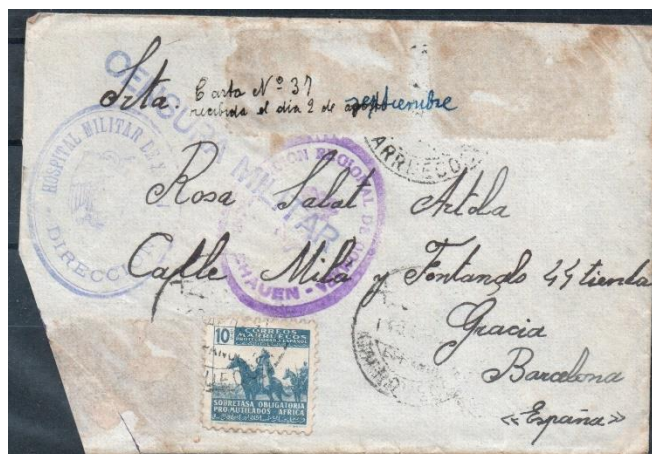 Srta.
Carta Nº 37
recibida el día 2 de septiembre
CENSURA MILITAR
HOSPITAL MILITAR DE
DIRECCION
REGIONAL DE
XAUEN
MARRUECOS
Rosa Salat Artola
Calle Milá y Fontanals 44 tienda
Gracia
Barcelona
«España»
10
CORREOS
MARRUECOS
SOBRETASA OBLIGATORIA
PRO-MUTILADOS AFRICA